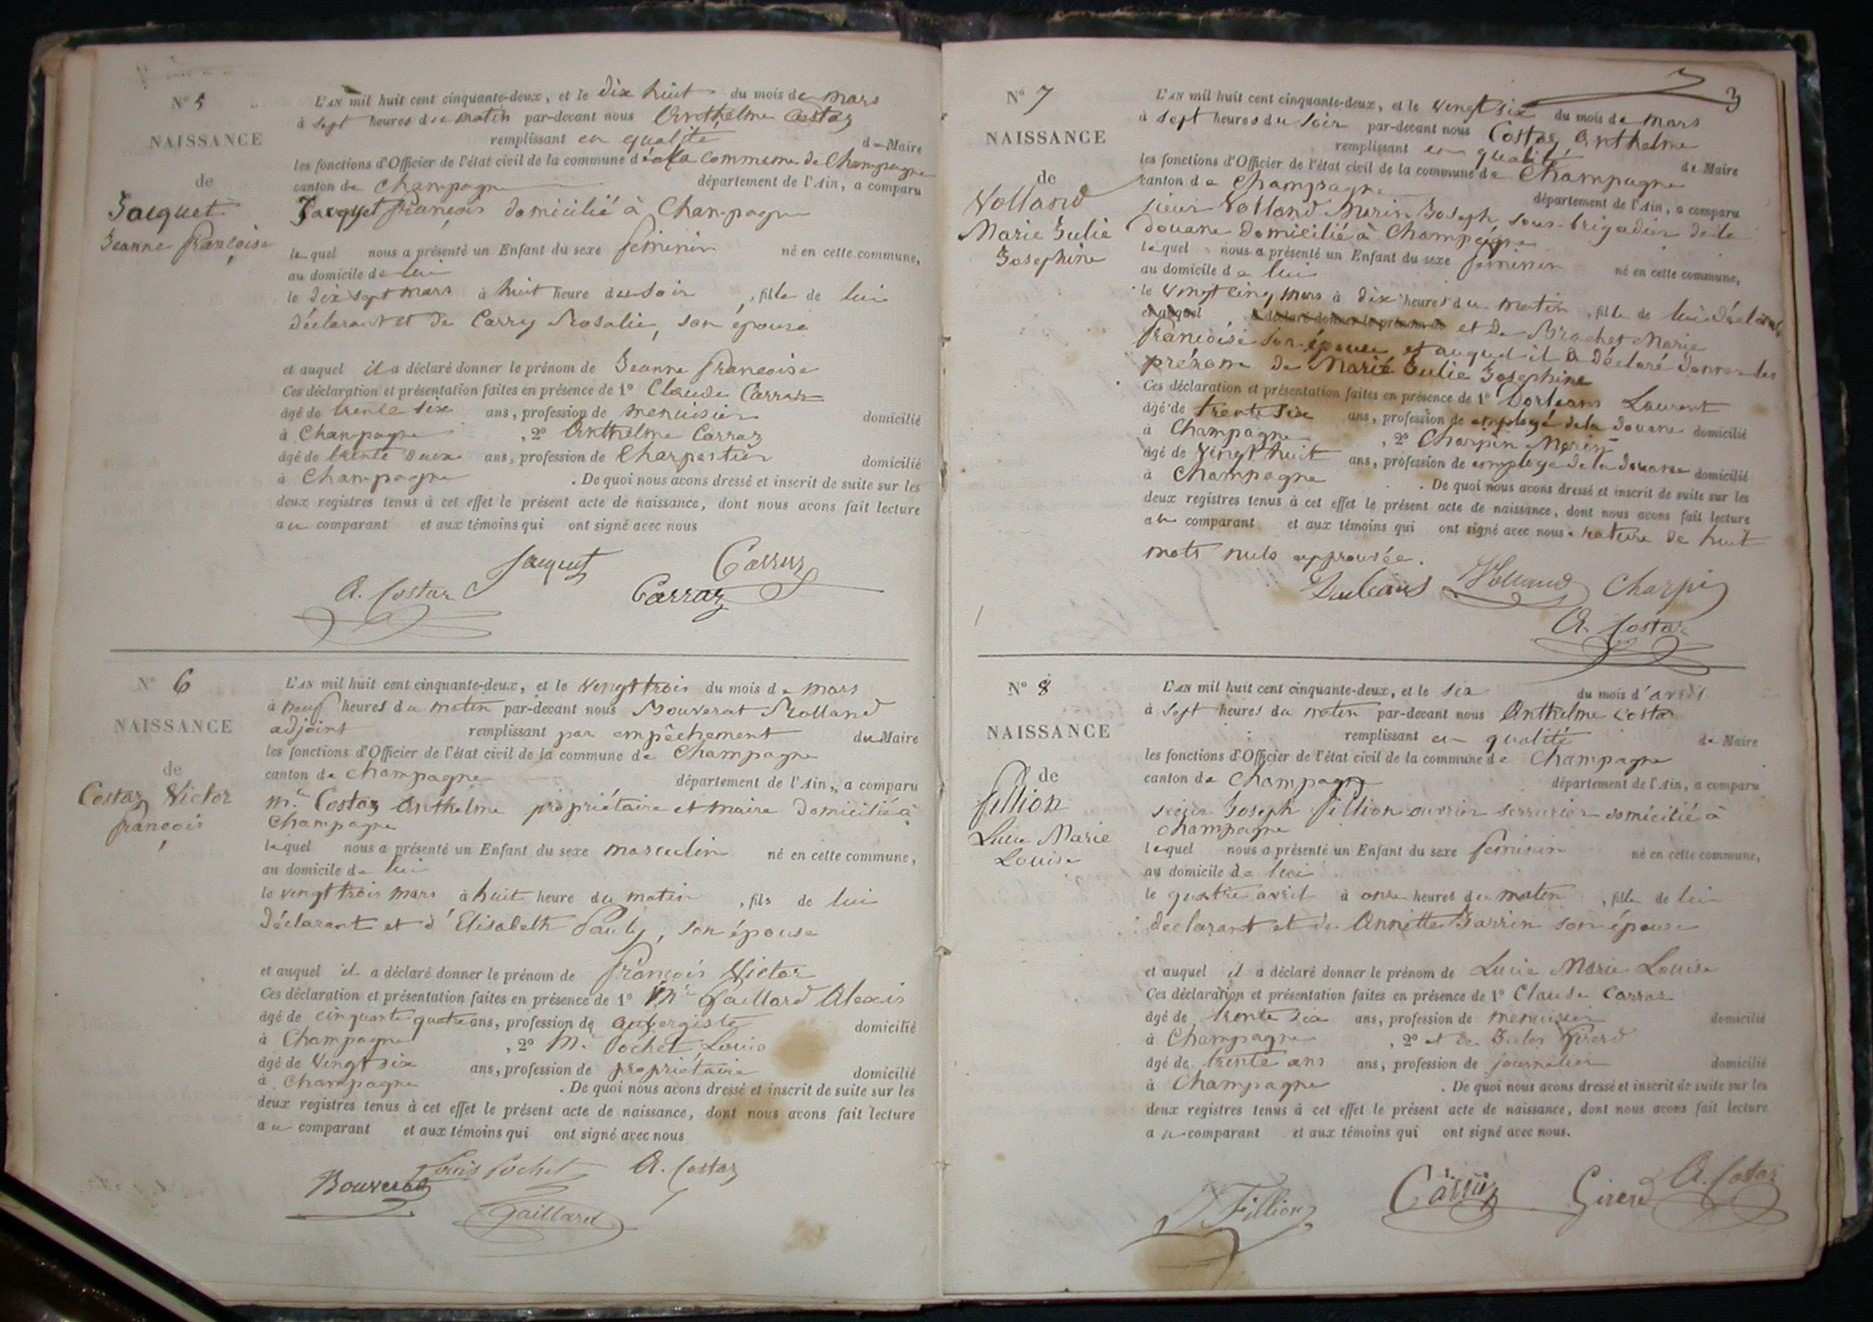 N° 5
NAISSANCE
de
Jacquet
Jeanne françoise
L'AN mil huit cent cinquante-deux, et le dix huit du mois de mars
à sept heures du matin par-devant nous Anthelme Costaz
remplissant en qualité de Maire
les fonctions d'Officier de l'état civil de la commune de la commune de Champagne
canton de Champagne département de l'Ain, a comparu
Jacquet françois domicilié à Champagne
lequel nous a présenté un Enfant du sexe féminin né en cette commune,
au domicile de lui
le dix sept mars à huit heure du soir , fille de lui
déclarant et de Carry Rosalie, son épouse
et auquel il a déclaré donner le prénom de Jeanne francoise
Ces déclaration et présentation faites en présence de 1° Claude Carraz
âgé de trente six ans, profession de menuisier domicilié
à Champagne , 2° Anthelme Carraz
âgé de trente deux ans, profession de Charpentier domicilié
à Champagne . De quoi nous avons dressé et inscrit de suite sur les
deux registres tenus à cet effet le présent acte de naissance, dont nous avons fait lecture
au comparant et aux témoins qui ont signé avec nous
Jacquet Carraz
A. Costaz Carraz
N° 6
NAISSANCE
de
Costaz Victor
françois
L'AN mil huit cent cinquante-deux, et le vingt trois du mois de mars
à neuf heures du matin par-devant nous Bouverat Rolland
adjoint remplissant par empêchement du Maire
les fonctions d'Officier de l'état civil de la commune de Champagne
canton de Champagne département de l'Ain, a comparu
mr. Costaz Anthelme propriétaire et maire domicilié à
Champagne
lequel nous a présenté un Enfant du sexe masculin né en cette commune,
au domicile de lui
le vingt trois mars à huit heure du matin , fils de lui
déclarant et d'Elisabeth Pauly, son épouse
et auquel il a déclaré donner le prénom de françois Victor
Ces déclaration et présentation faites en présence de 1° Mr Gaillard Alexis
âgé de cinquante quatre ans, profession de aubergiste domicilié
à Champagne , 2° Mr Pochet Louis
âgé de vingt six ans, profession de propriétaire domicilié
à Champagne . De quoi nous avons dressé et inscrit de suite sur les
deux registres tenus à cet effet le présent acte de naissance, dont nous avons fait lecture
au comparant et aux témoins qui ont signé avec nous
Bouverat Louis Pochet A. Costaz
Gaillard
3
N° 7
NAISSANCE
de
Volland
Marie Julie
Josephine
L'AN mil huit cent cinquante-deux, et le vingt six du mois de mars
à sept heures du soir par-devant nous Costaz Anthelme
remplissant en qualité de Maire
les fonctions d'Officier de l'état civil de la commune de Champagne
canton de Champagne département de l'Ain, a comparu
sieur Volland Marin Joseph sous-brigadier de la
douane domicilié à Champagne
lequel nous a présenté un Enfant du sexe féminin né en cette commune,
au domicile de lui
le vingt cinq mars à dix heures du matin , fille de lui déclarant
et auquel a déclaré donner le prénom de et de Brachet Marie
francoise son épouse et auquel il a déclaré donner les
prénom de Marie Julie Josephine
Ces déclaration et présentation faites en présence de 1° Dorléans Laurent
âgé de trente six ans, profession de employé de la douane domicilié
à Champagne , 2° Charpin Marin
âgé de vingt huit ans, profession de employé de la douane domicilié
à Champagne . De quoi nous avons dressé et inscrit de suite sur les
deux registres tenus à cet effet le présent acte de naissance, dont nous avons fait lecture
au comparant et aux témoins qui ont signé avec nous. rature de huit
mots nuls approuvée.
Volland Charpin
A. Costaz
N° 8
NAISSANCE
de
fillion
Lucie Marie
Louise
L'AN mil huit cent cinquante-deux, et le six du mois d'avril
à sept heures du matin par-devant nous Anthelme Costaz
remplissant en qualité de Maire
les fonctions d'Officier de l'état civil de la commune de Champagne
canton de Champagne département de l'Ain, a comparu
sieur Joseph fillion ouvrier serrurier domicilié à
Champagne
lequel nous a présenté un Enfant du sexe féminin né en cette commune,
au domicile de lui
le quatre avril à onze heures du matin , fille de lui
déclarant et de Annette Garrin son épouse
et auquel il a déclaré donner le prénom de Lucie Marie Louise
Ces déclaration et présentation faites en présence de 1° Claude Carraz
âgé de trente six ans, profession de menuisier domicilié
à Champagne , 2° et de Girerd
âgé de trente ans ans, profession de journalier domicilié
à Champagne . De quoi nous avons dressé et inscrit de suite sur les
deux registres tenus à cet effet le présent acte de naissance, dont nous avons fait lecture
au comparant et aux témoins qui ont signé avec nous.
J Fillion Carraz Girerd A. Costaz